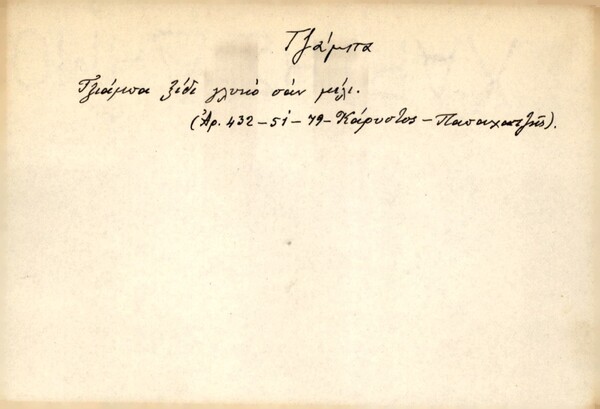 Τζάμπα
Τζιάμπα ξίδι γλυκό σάν μέλι.
(Ἀρ. 432-51-79-Κάρυστος-Παπαχατζῆς).